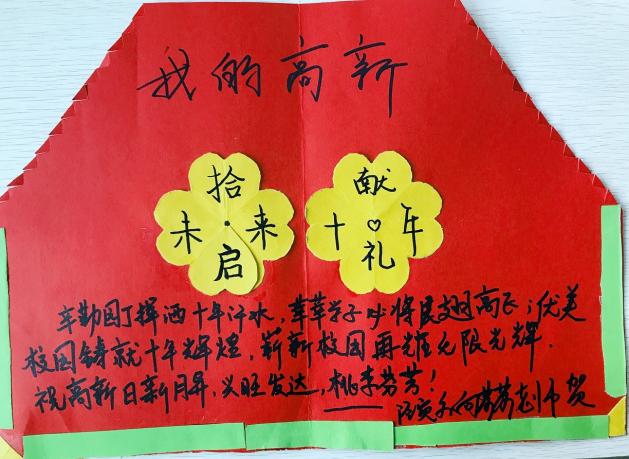 我的高新
拾
未·来
启
献
十年
礼
辛勤园丁挥洒十年汗水，莘莘学子必将展翅高飞；优美
校园铸就十年辉煌，崭新校园再耀无限光辉.
祝高新日新月异，兴旺发达，桃李芬芳！
老师 贺